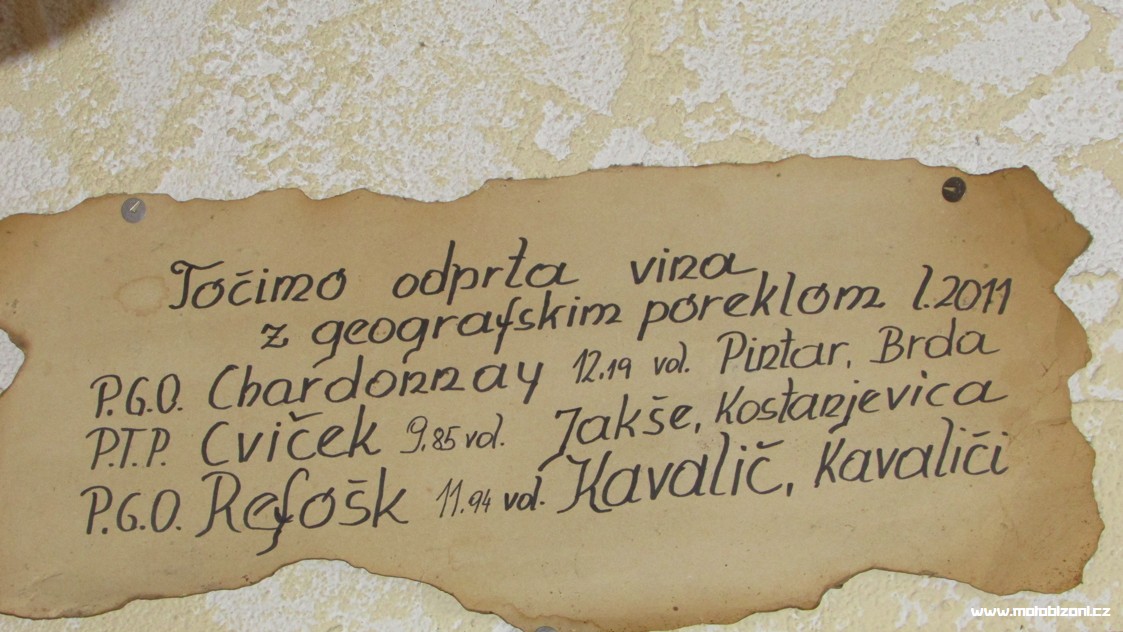 Točimo odprta vina
z geografskim poreklom l.2011
P.G.O. Chardonnay 12.19 vol. Pintar, Brda
P.T.P. Cviček 9.85 vol. Jakše, Kostanjevica
P.G.O. Refošk 11.94 vol. Kavalič, Kavaliči
www.motobizoni.cz